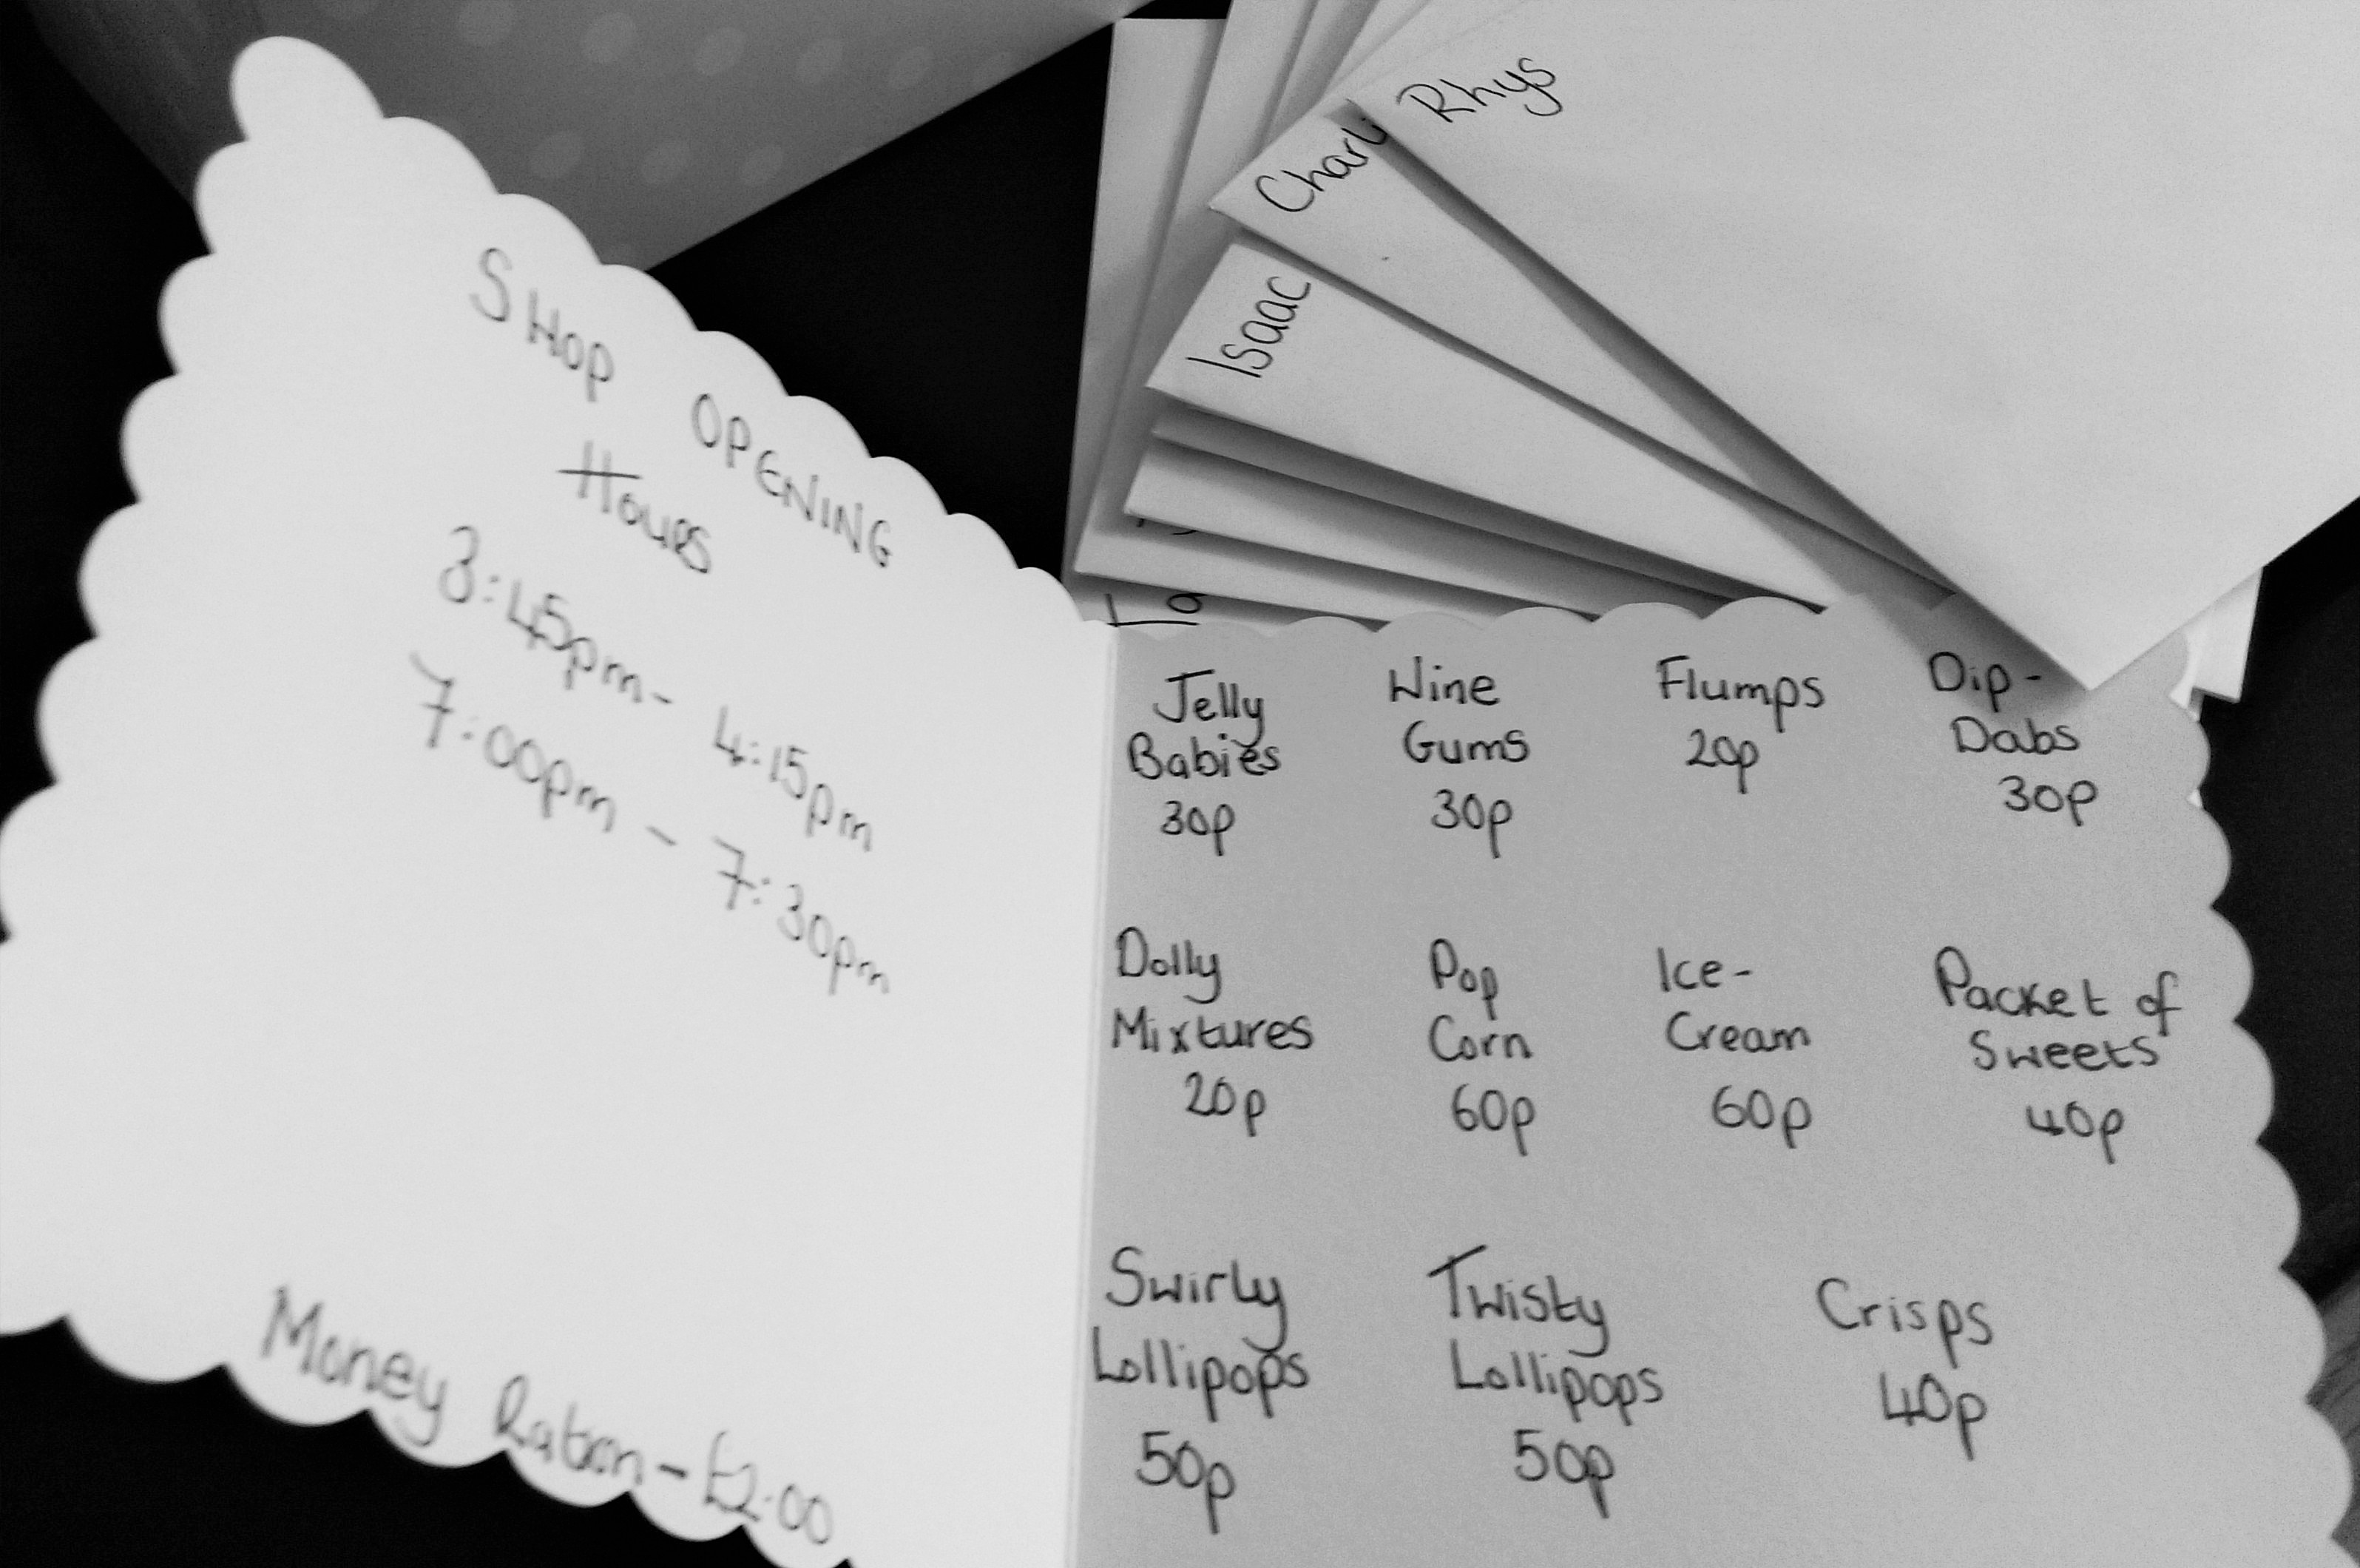 Rhys
Charli
Isaac
SHOP OPENING
HOURS
3:45pm - 4:15pm
7:00pm - 7:30pm
Money Ration - £2.00
Jelly
Babies
30p
Wine
Gums
30p
Flumps
20p
Dip-
Dabs
30p
Dolly
Mixtures
20p
Pop
Corn
60p
Ice-
Cream
60p
Packet of
Sweets
40p
Swirly
Lollipops
50p
Twisty
Lollipops
50p
Crisps
40p